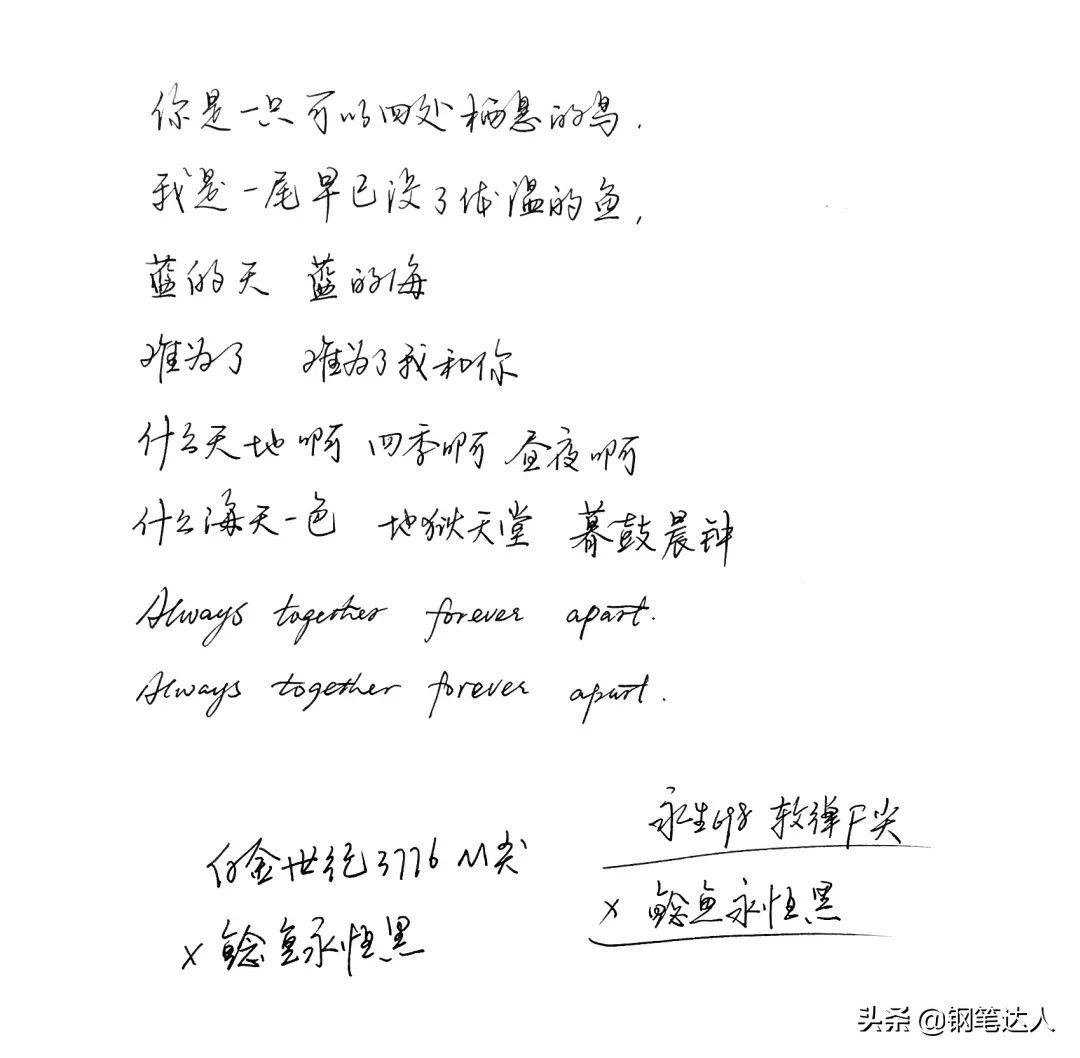 你是一只可以四处栖息的鸟.
我是一尾早已没了体温的鱼,
蓝的天 蓝的海
难为了 难为了我和你
什么天地啊 四季啊 昼夜啊
什么海天一色 地狱天堂 暮鼓晨钟
Always together forever apart.
Always together forever apart.
永生698 软弹F尖
× 鲶鱼永恒黑
白金世纪3776 M尖
× 鲶鱼永恒黑
头条 @钢笔达人